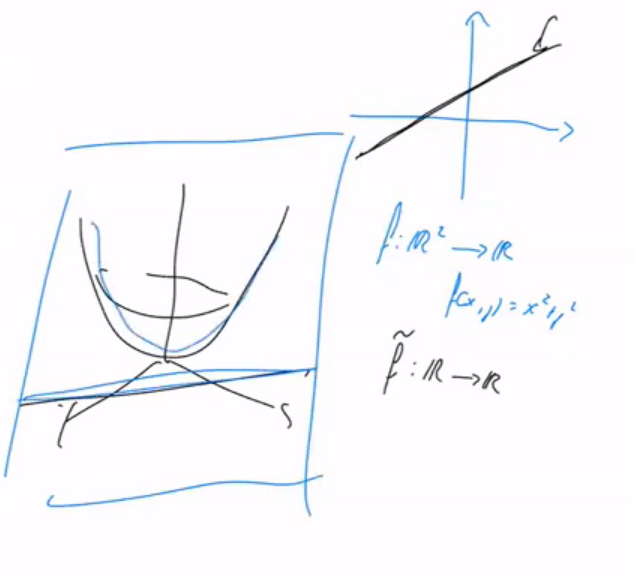 f : ℝ² → ℝ
f(x,y) = x²+y²
f̃ : ℝ → ℝ